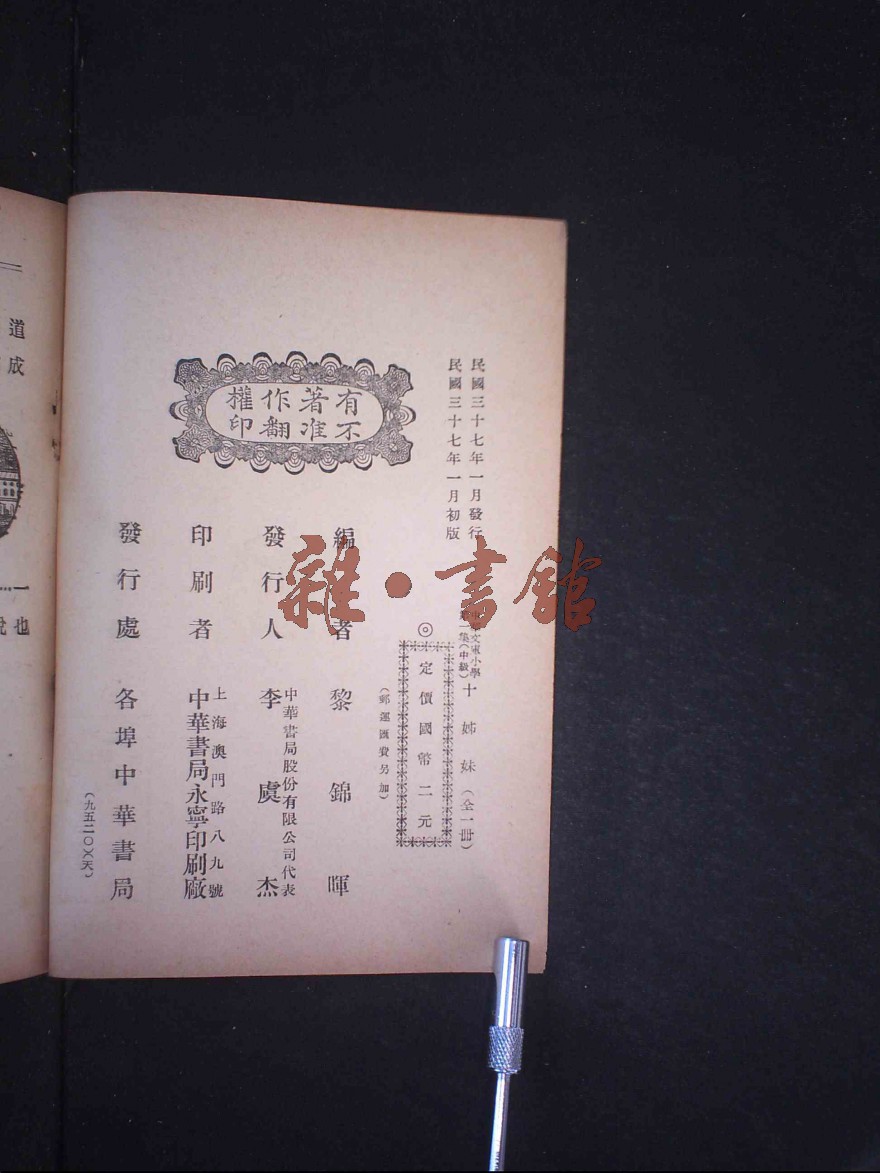 民國三十七年一月發行
民國三十七年一月初版
中華文庫小學
第一集(中級)
十姊妹(全一冊)
◎定價國幣二元
(郵運匯費另加)
有著作權
不准翻印
編者 黎錦暉
發行人 李虞杰
中華書局股份有限公司代表
印刷者 中華書局永寧印刷廠
上海澳門路八九號
發行處 各埠中華書局
(九五二〇)(天)
雜·書館
道
成
一…
也